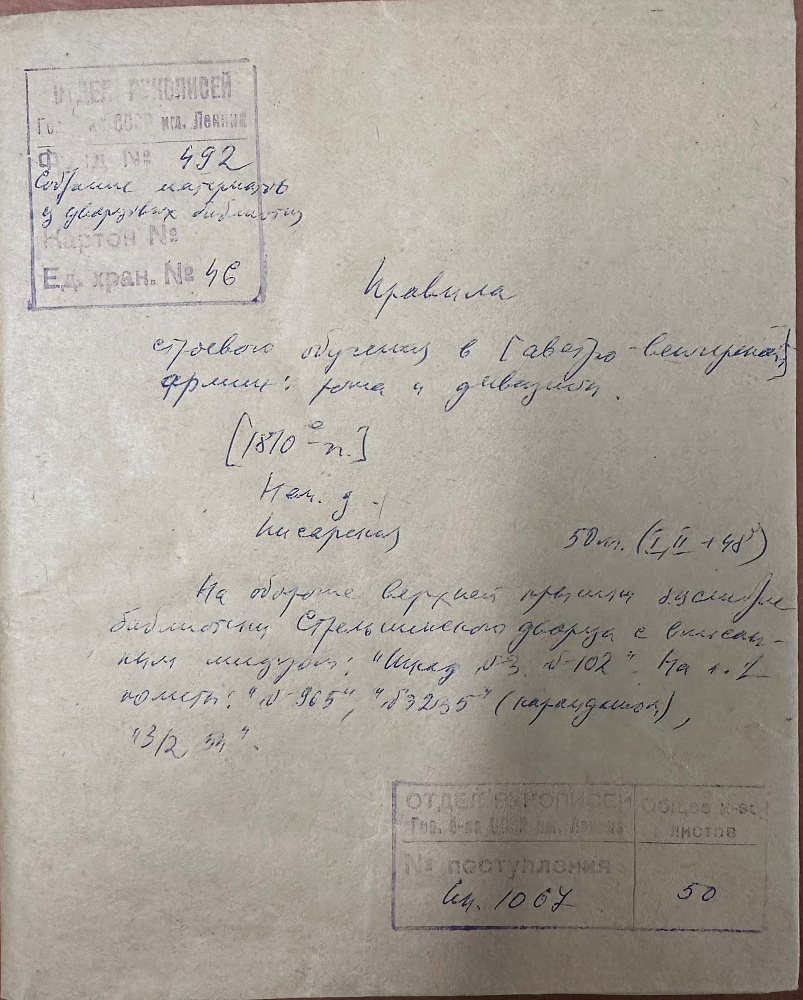 ОТДЕЛ РУКОПИСЕЙ
СССР им. Ленина
№ 492
Собрание материалов
из дворцовых библиотек
Картон №
Ед. хран. № 46
Правила
строевого обучения в [австро-венгерской]
армии: рота и дивизион.
[1870-е гг.]
Нем. яз.
Писарская
50 лл. (I, II + 48)
На обороте верхней крышки
библиотеки Стрельнинского дворца с вписан-
ным шифром: "Шкаф №3, №102". На л. I
пометы: "№ 965", "№ 3235" (карандашом),
"3/2
ОТДЕЛ РУКОПИСЕЙ
Гос. б-ка СССР им. Ленина
№ поступления
1067
Общее к-во
листов
50